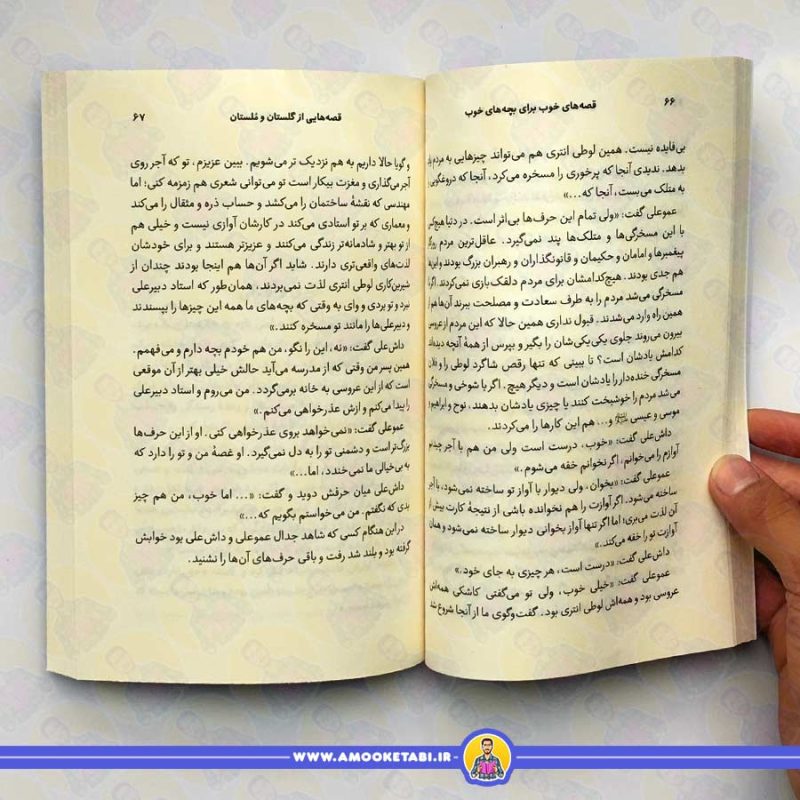 ۶۶ قصه‌های خوب برای بچه‌های خوب
بی‌فایده نیست. همین لوطی انتری هم می‌تواند چیزهایی به مردم یاد
بدهد. ندیدی آنجا که پرخوری را مسخره می‌کرد، آنجا که دروغگویی
به متلک می‌بست، آنجا که...»
عموعلی گفت: «ولی تمام این حرف‌ها بی‌اثر است. در دنیا هیچ‌کس
با این مسخرگی‌ها و متلک‌ها پند نمی‌گیرد. عاقل‌ترین مردم روزگار
پیغمبرها و امامان و حکیمان و قانونگذاران و رهبران بزرگ بودند و این‌ها
هم جدی بودند. هیچ‌کدامشان برای مردم دلقک بازی نمی‌کردند. اگر با
مسخرگی می‌شد مردم را به طرف سعادت و مصلحت ببرند آن‌ها
همین راه وارد می‌شدند. قبول نداری همین حالا که این مردم از عروسی
بیرون می‌روند جلوی یکی‌یکی‌شان را بگیر و بپرس از همهٔ آنچه دیده‌اند
کدامش یادشان است؟ تا ببینی که تنها رقص شاگرد لوطی را و فلان
مسخرگی خنده‌دار را یادشان است و دیگر هیچ. اگر با شوخی و مسخرگی
می‌شد مردم را خوشبخت کنند یا چیزی یادشان بدهند، نوح و ابراهیم و
موسی و عیسی و... هم این کارها را می‌کردند.
داش‌علی گفت: «خوب، درست است ولی من هم با آجر چیدنم
آوازم را می‌خوانم، اگر نخوانم خفه می‌شوم.»
عموعلی گفت: «بخوان، ولی دیوار با آواز تو ساخته نمی‌شود، با آجر
ساخته می‌شود. اگر آوازت را هم نخوانده باشی از نتیجهٔ کارت بیش از
آن لذت می‌بری؛ اما اگر تنها آواز بخوانی دیوار ساخته نمی‌شود و همان
آوازت تو را خفه می‌کند.»
داش‌علی گفت: «درست است، هر چیزی به جای خود.»
عموعلی گفت: «خیلی خوب، ولی تو می‌گفتی کاشکی همه‌اش
عروسی بود و همه‌اش لوطی انتری بود. گفت‌وگوی ما از آنجا شروع شد
قصه‌هایی از گلستان و ملستان ۶۷
و گویا حالا داریم به هم نزدیک تر می‌شویم. ببین عزیزم، تو که آجر روی
آجر می‌گذاری و مغزت بیکار است تو می‌توانی شعری هم زمزمه کنی؛ اما
مهندسی که نقشهٔ ساختمان را می‌کشد و حساب ذره و مثقال را می‌کند
و معماری که بر تو استادی می‌کند در کارشان آوازی نیست و خیلی هم
از تو بهتر و شادمانه‌تر زندگی می‌کنند و عزیزتر هستند و برای خودشان
لذت‌های واقعی‌تری دارند. شاید اگر آن‌ها هم اینجا بودند چندان از
شیرین‌کاری لوطی انتری لذت نمی‌بردند، همان‌طور که استاد دبیرعلی
نبرد و تو بردی و وای به وقتی که بچه‌های ما همه این چیزها را بپسندند
و دبیرعلی‌ها را مانند تو مسخره کنند.»
داش‌علی گفت: «نه، این را نگو، من هم خودم بچه دارم و می‌فهمم.
همین پسر من وقتی که از مدرسه می‌آید حالش خیلی بهتر از آن موقعی
است که از این عروسی به خانه برمی‌گردد. من می‌روم و استاد دبیرعلی
را پیدا می‌کنم و ازش عذرخواهی می‌کنم.»
عموعلی گفت: «نمی‌خواهد بروی عذرخواهی کنی. او از این حرف‌ها
بزرگ‌تر است و دشمنی تو را به دل نمی‌گیرد. او غصهٔ من و تو را دارد که
به بی‌خیالی ما نمی‌خندد، اما...»
داش‌علی میان حرفش دوید و گفت: «... اما خوب، من هم چیز
بدی که نگفتم. من می‌خواستم بگویم که...»
در این هنگام کسی که شاهد جدال عموعلی و داش‌علی بود خوابش
گرفته بود و بلند شد رفت و باقی حرف‌های آن‌ها را نشنید.
WWW.AMOOKETABI.IR